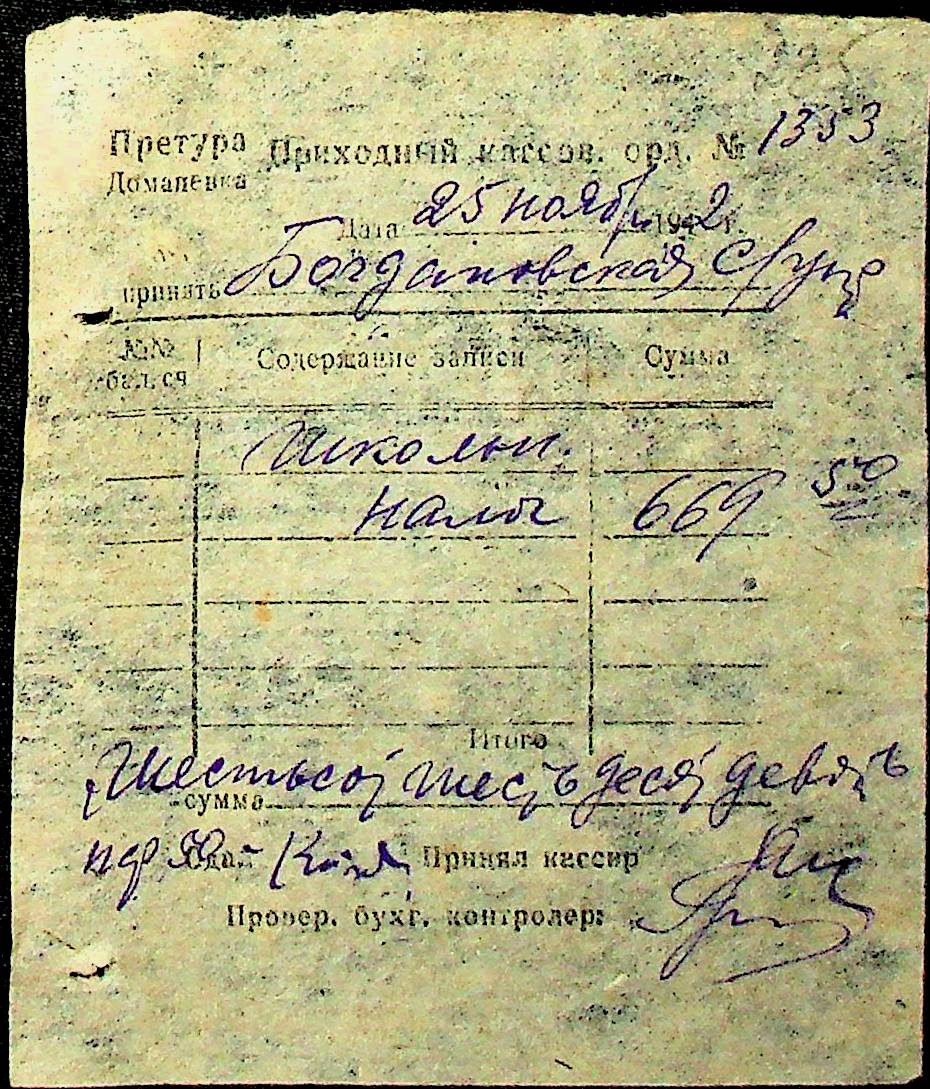 Претура Приходный кассов. орд. № 1353
Доманевка
Дата 25 ноябр 1942 г.
принять Богдановская
№№ бал. сч Содержание записи Сумма
Школьн.
налог 669 50
Итого
Шестьсот шестьдесят девять
сумма
Принял кассир
Провер. бухг. контролер: